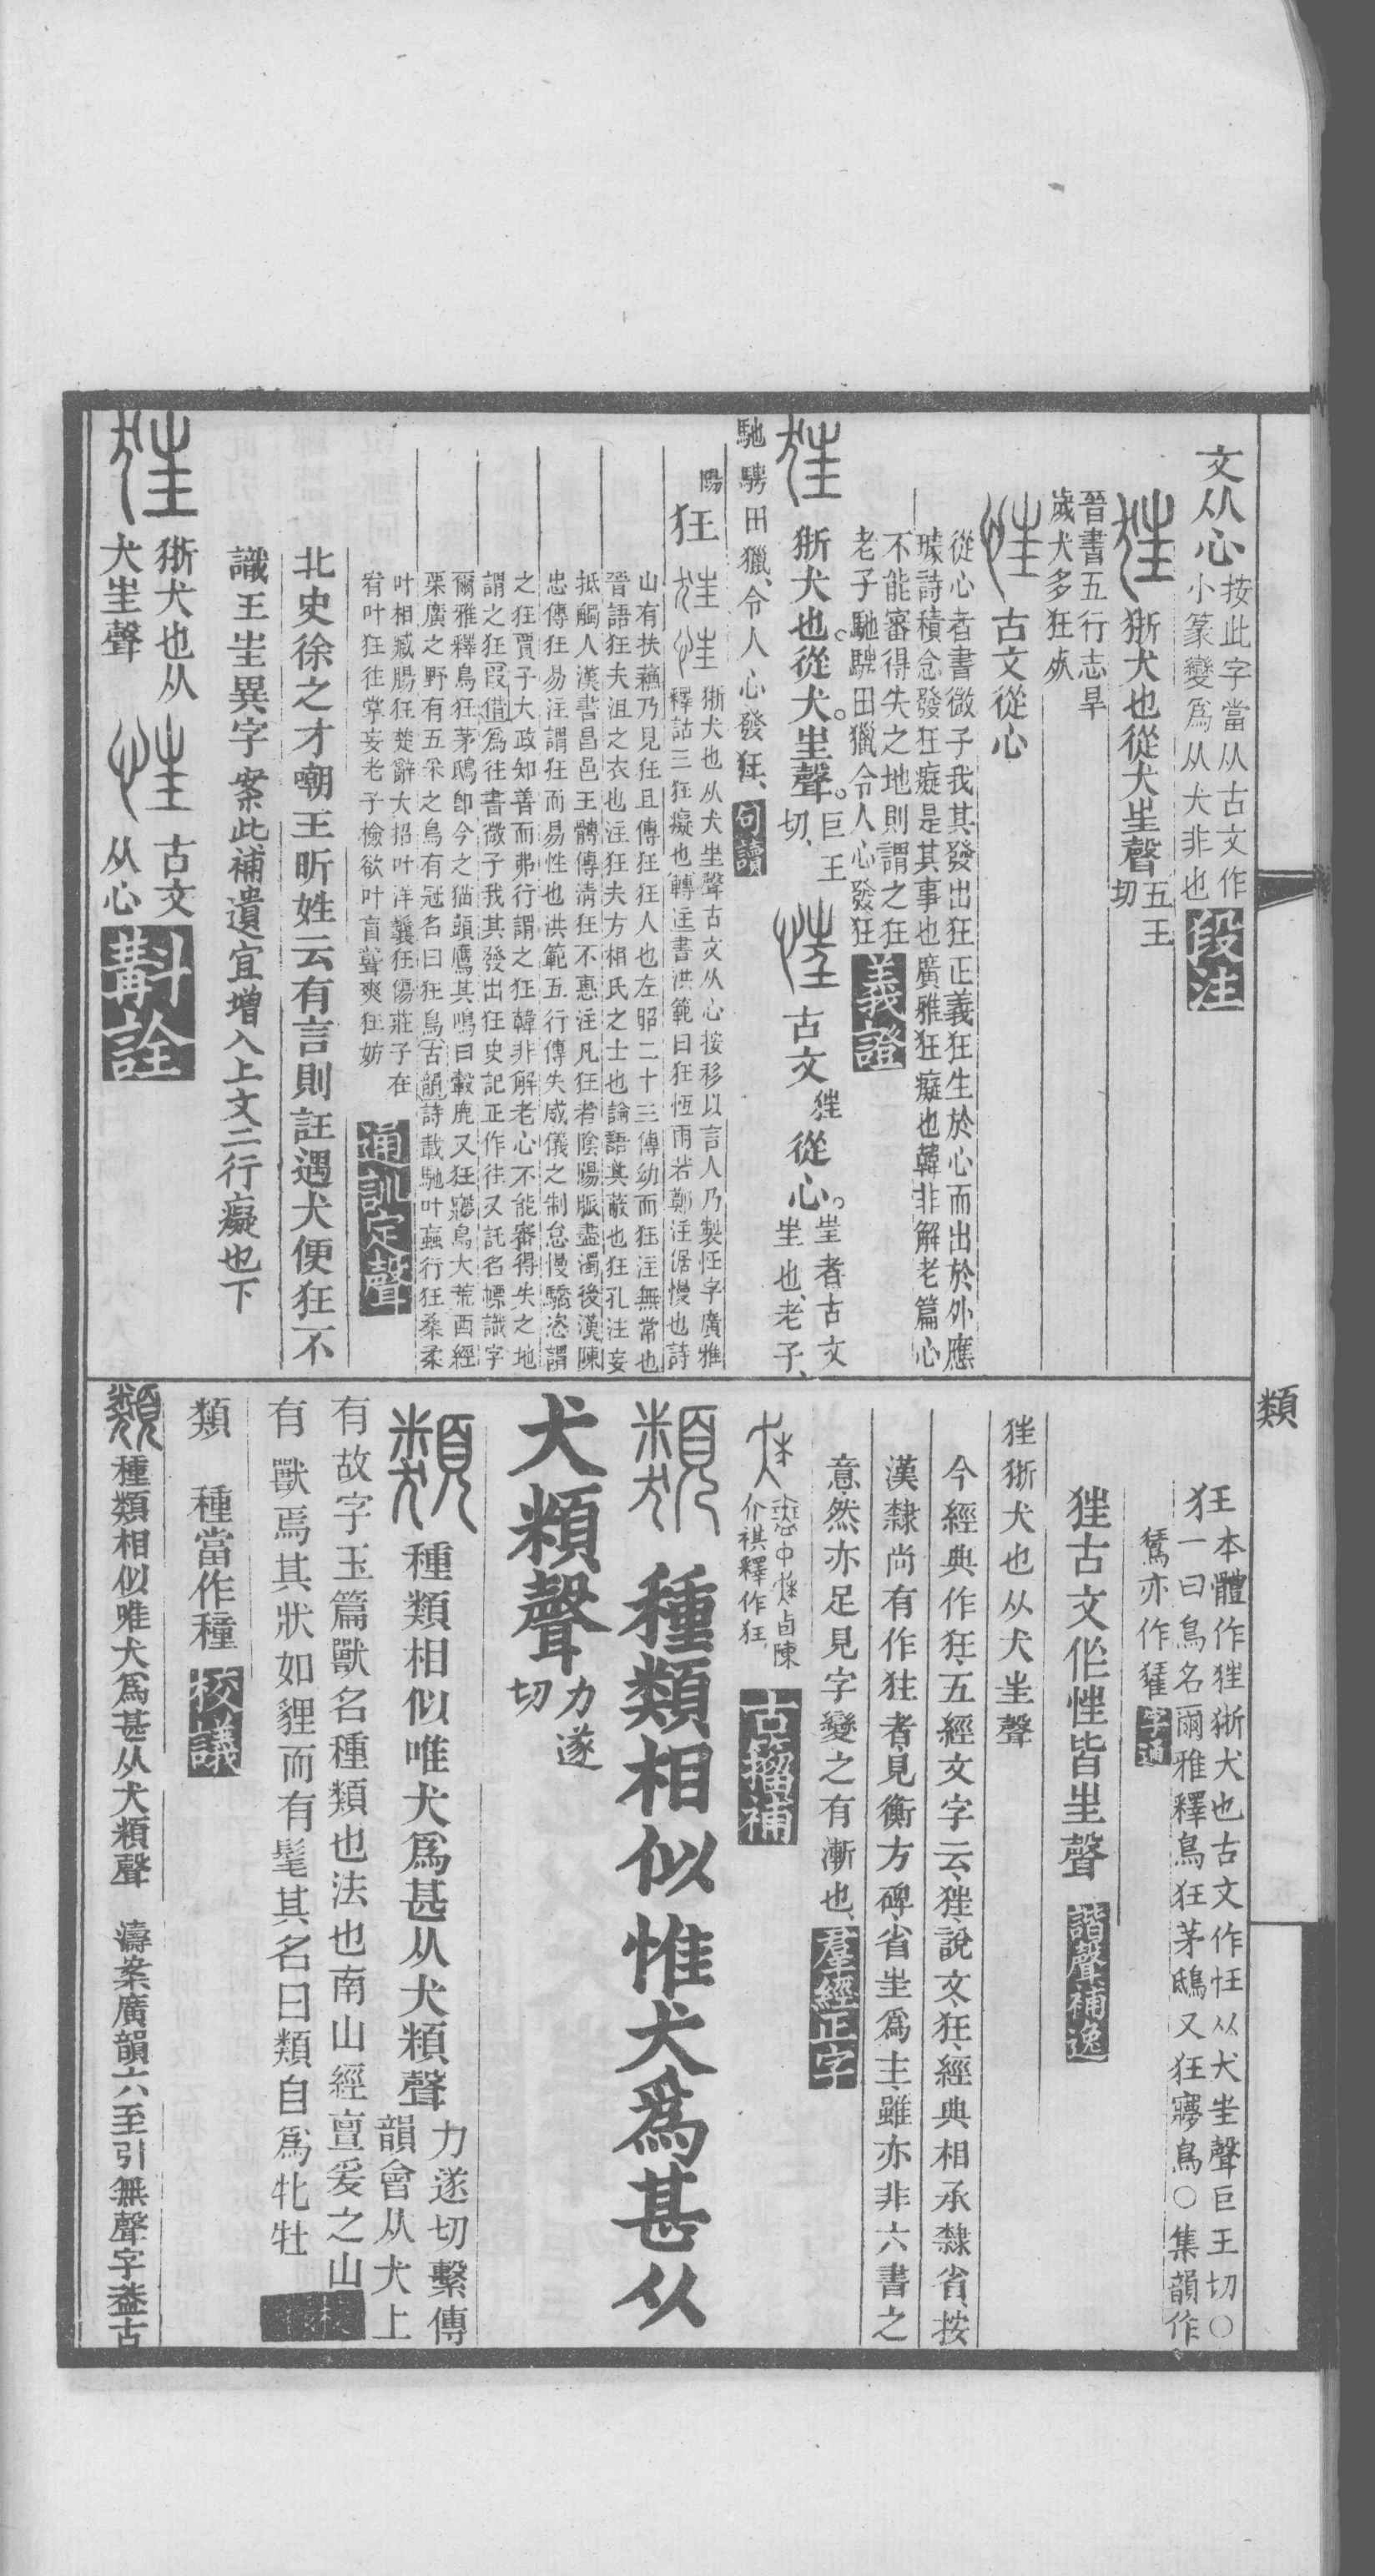 文从心
按此字當从古文作
小篆變爲从犬非也
段注
狾犬也從犬㞷聲
五王
切
晉書五行志旱
歲犬多狂死
古文從心
從心者書微子我其發出狂正義狂生於心而出於外應
璩詩積念發狂癡是其事也廣雅狂癡也韓非解老篇心
不能審得失之地則謂之狂
老子馳騁田獵令人心發狂
義證
狾犬也。從犬。㞷聲。
巨王
切、
古文
狴從心。
㞷者古文
㞷也、老子、
馳騁田獵、令人心發狂、
句讀
陽
狂
狾犬也从犬㞷聲古文从心按移以言人乃製忹字廣雅
釋詁三狂癡也轉注書洪範曰狂恆雨若鄭注倨慢也詩
山有扶蘇乃見狂且傳狂狂人也左昭二十三傳幼而狂注無常也
晉語狂夫沮之衣也注狂夫方相氏之士也論語其蔽也狂孔注妄
抵觸人漢書昌邑王髆傳淸狂不惠注凡狂者陰陽脈盡濁後漢陳
忠傳狂易注謂狂而易性也洪範五行傳失威儀之制怠慢驕恣謂
之狂賈子大政知善而弗行謂之狂韓非解老心不能審得失之地
謂之狂叚借爲往書微子我其發出狂史記正作往又託名幖識字
爾雅釋鳥狂茅鴟卽今之猫頭鷹其鳴曰轂鹿又狂㝱鳥大荒西經
栗廣之野有五采之鳥有冠名曰狂鳥古韻詩載馳叶蝱行狂桑柔
叶相臧腸狂楚辭大招叶洋鬤狂傷莊子在
宥叶狂往掌妄老子檢欲叶盲聾爽狂妨
通訓定聲
北史徐之才嘲王昕姓云有言則註遇犬便狂不
識王㞷異字案此補遺宜增入上文二行癡也下
狾犬也从
犬㞷聲
古文
从心
斠詮
類
狂本體作狴狾犬也古文作忹从犬㞷聲巨王切○
狂一曰鳥名爾雅釋鳥狂茅鴟又狂㝱鳥○集韻作
鵟亦作㹰
字通
狴古文作㤮皆㞷聲
諧聲補逸
狴狾犬也从犬㞷聲
今經典作狂、五經文字云、狴、說文、狂、經典相承隸省、按
漢隸尚有作狂者、見衡方碑、省㞷爲主、雖亦非六書之
意、然亦足見字變之有漸也、
羣經正字
介祺釋作狂、
古籀補
種類相似惟犬爲甚从
犬頪聲
力遂
切
種類相似唯犬爲甚从犬頪聲
力遂切繫傳
韻會从犬上
有故字玉篇獸名種類也法也南山經亶爰之山
有獸焉其狀如貍而有髦其名曰類自爲牝牡
類
種當作穜
校議
種類相似唯犬爲甚从犬頪聲
濤案廣韻六至引無聲字葢古